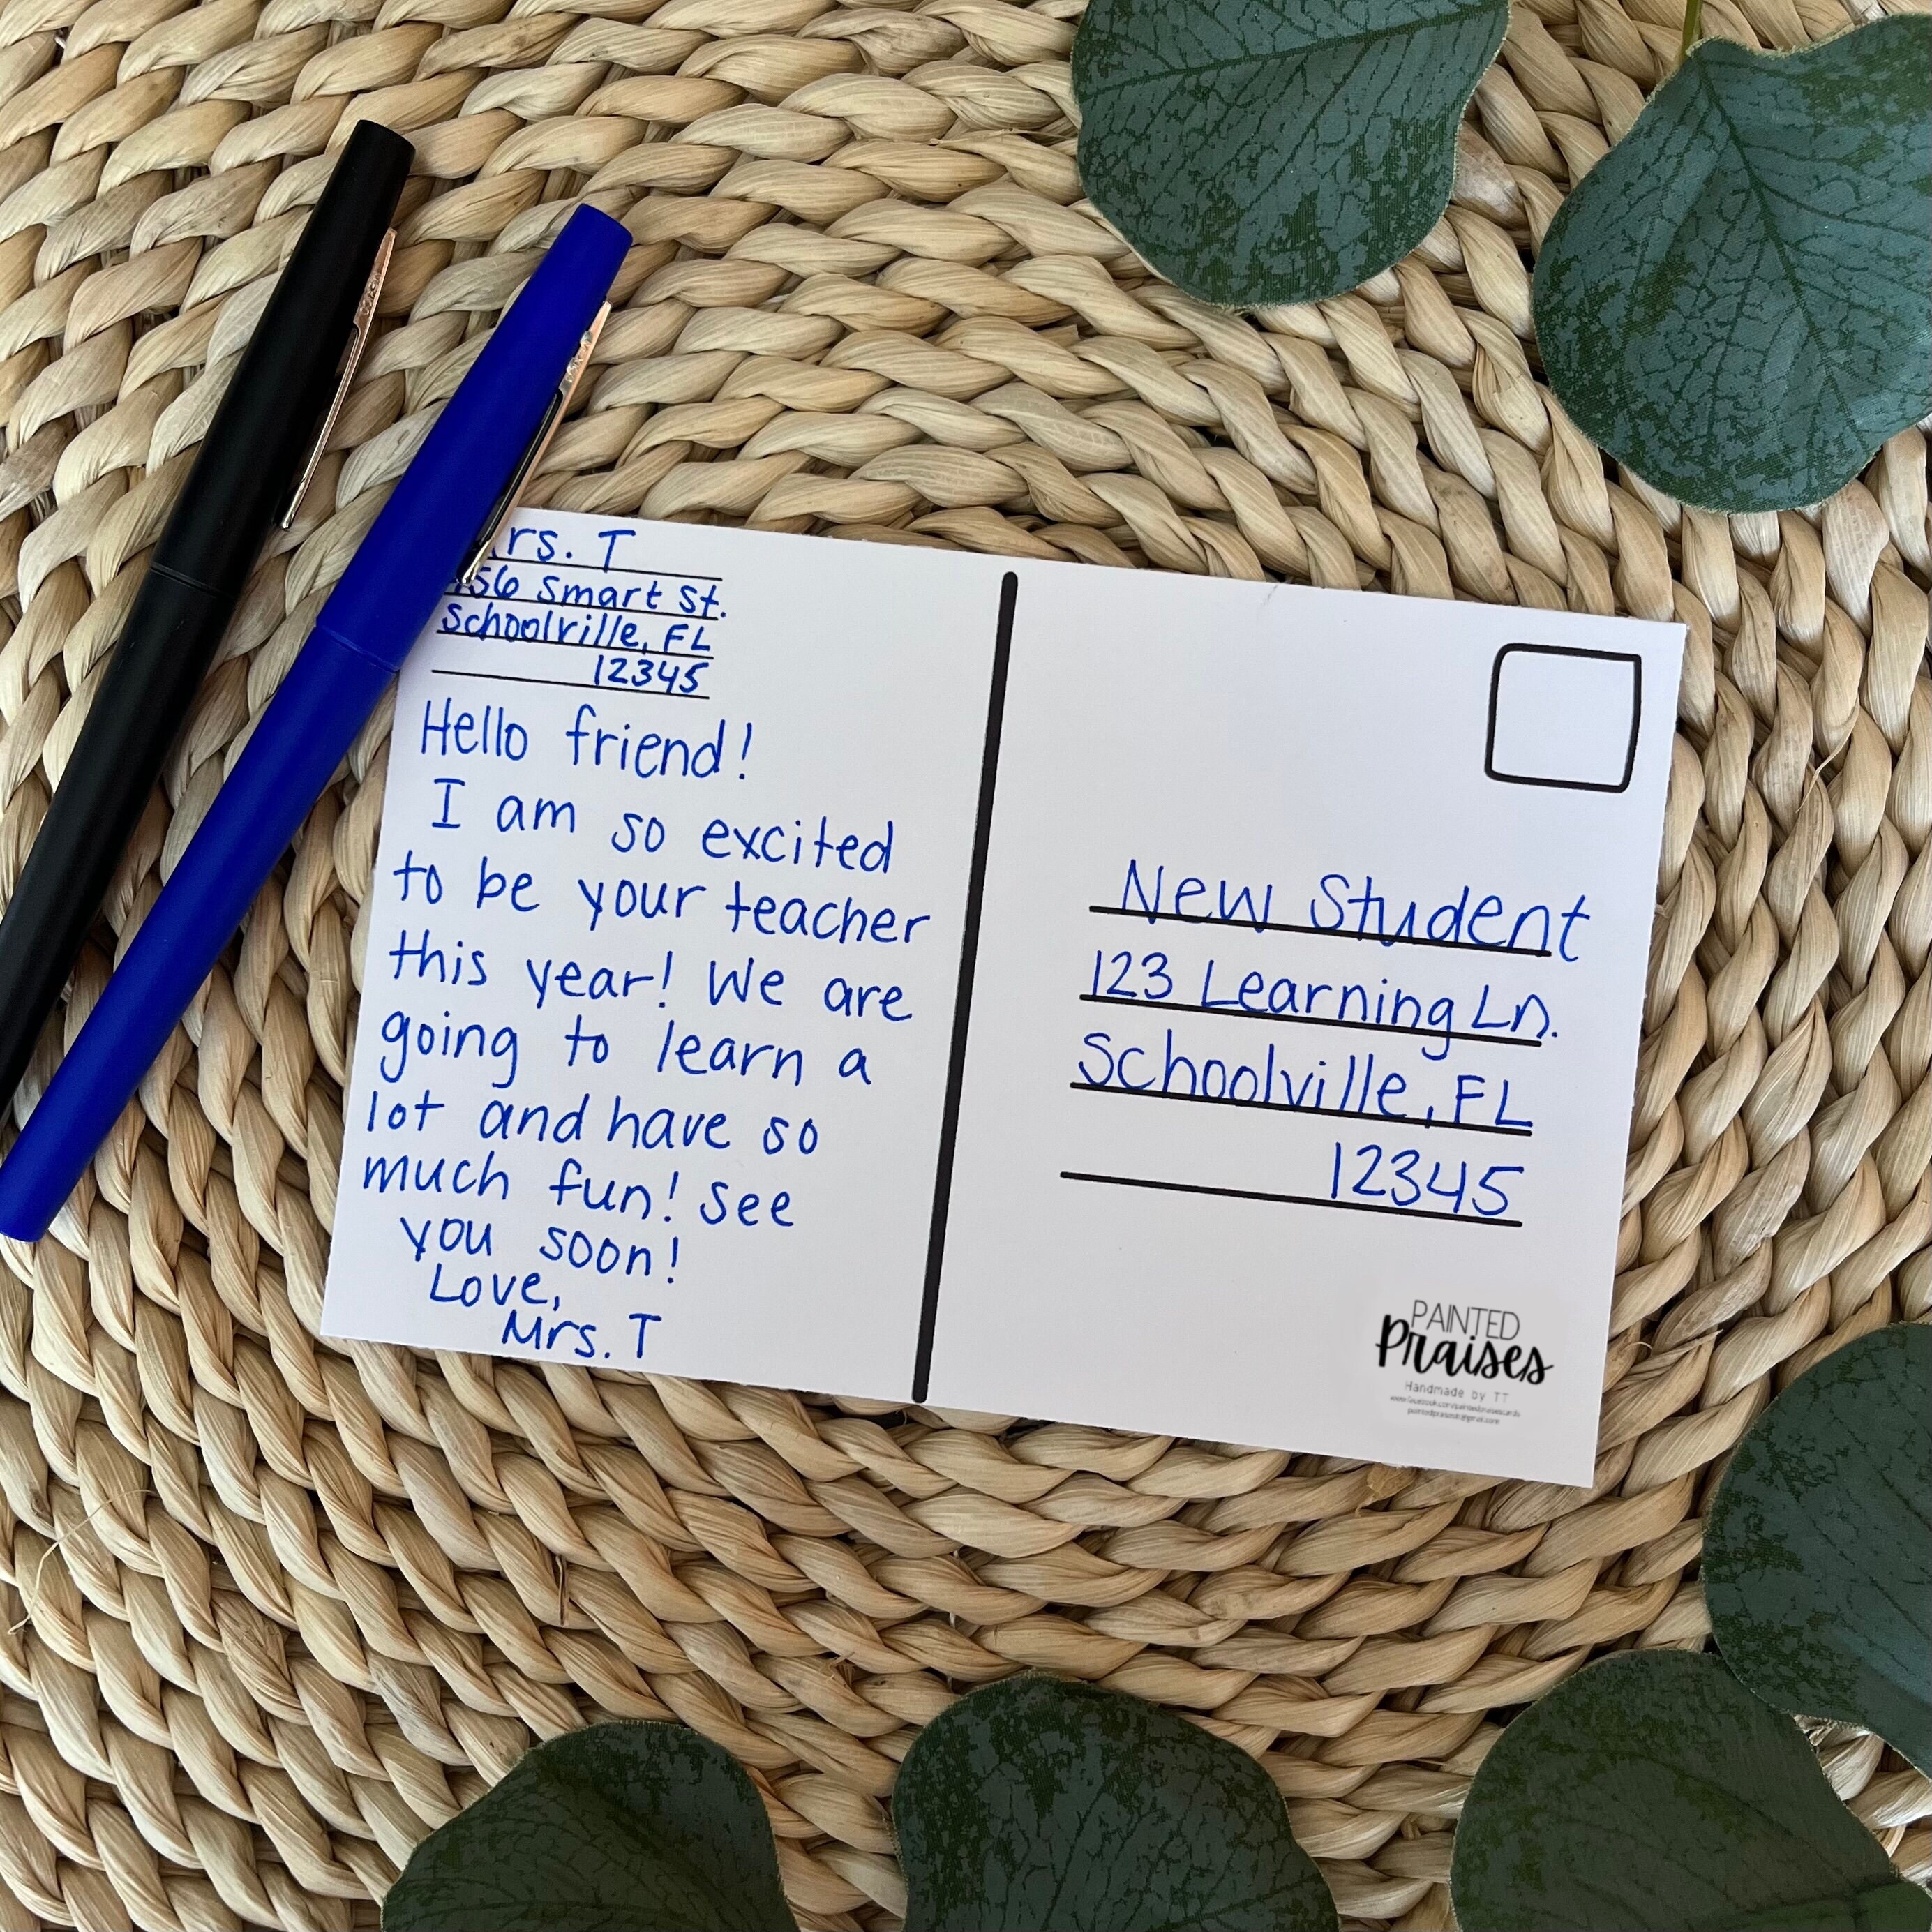 Mrs. T
456 Smart St.
Schoolville, FL
12345
Hello friend!
I am so excited
to be your teacher
this year! We are
going to learn a
lot and have so
much fun! See
you soon!
Love,
Mrs. T
New Student
123 Learning Ln.
Schoolville, FL
12345
PAINTED
Praises
Handmade by TT